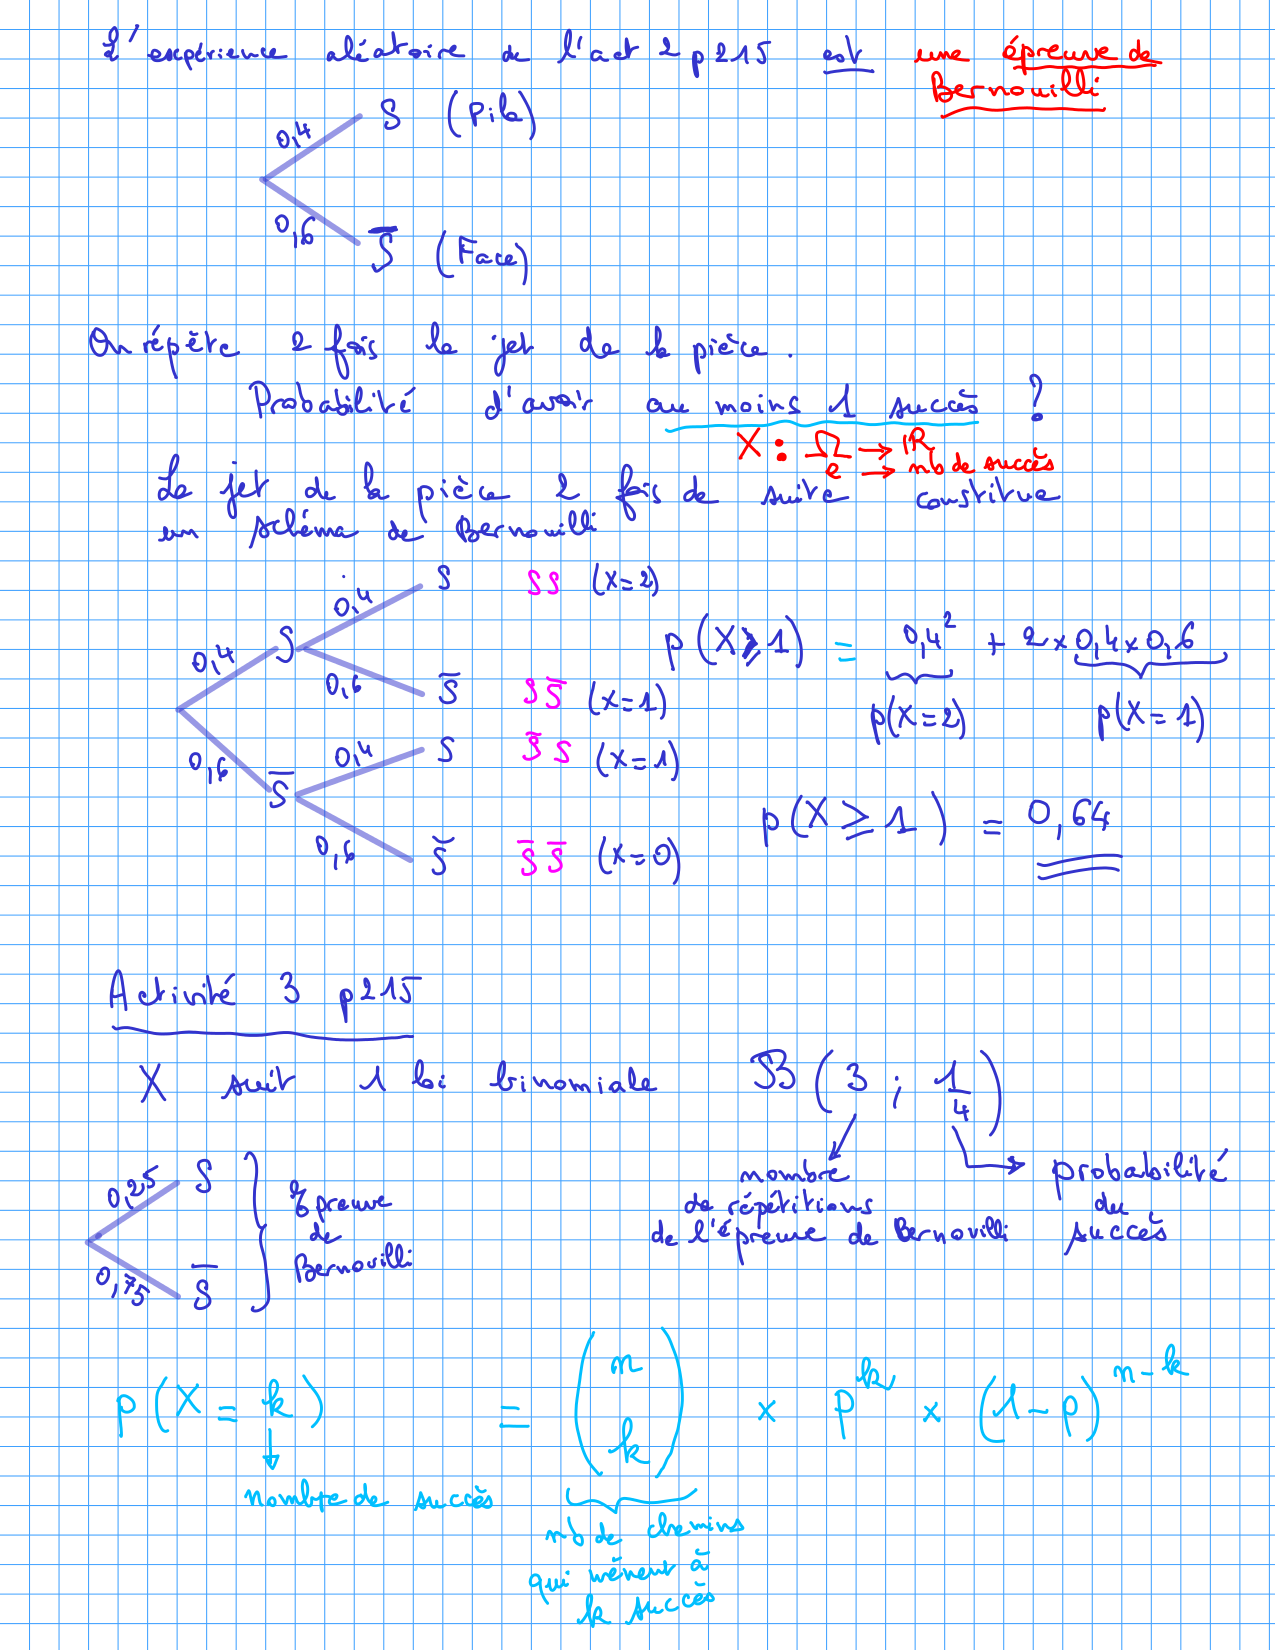 L'expérience aléatoire de l'act 2 p215 est une épreuve de
Bernouilli
0,4 S (Pile)
0,6 S̅ (Face)
On répète 2 fois le jet de la pièce.
Probabilité d'avoir au moins 1 succès ?
X : Ω → ℝ
e → nb de succès
Le jet de la pièce 2 fois de suite constitue
un schéma de Bernouilli
0,4 S SS (X=2)
0,4 S
0,6 S̅ SS̅ (X=1)
p(X⩾1) = 0,4² + 2×0,4×0,6
p(X=2) p(X=1)
0,4 S S̅S (X=1)
0,6 S̅
0,6 S̅ S̅S̅ (X=0)
p(X ≥ 1) = 0,64
Activité 3 p215
X suit 1 loi binomiale B(3 ; 1/4)
nombre
de répétitions
de l'épreuve de Bernouilli
probabilité
du
succès
0,25 S
0,75 S̅
Epreuve
de
Bernouilli
p(X = k) = (n k) × p^k × (1-p)^(n-k)
nombre de succès
nb de chemins
qui mènent à
k succès